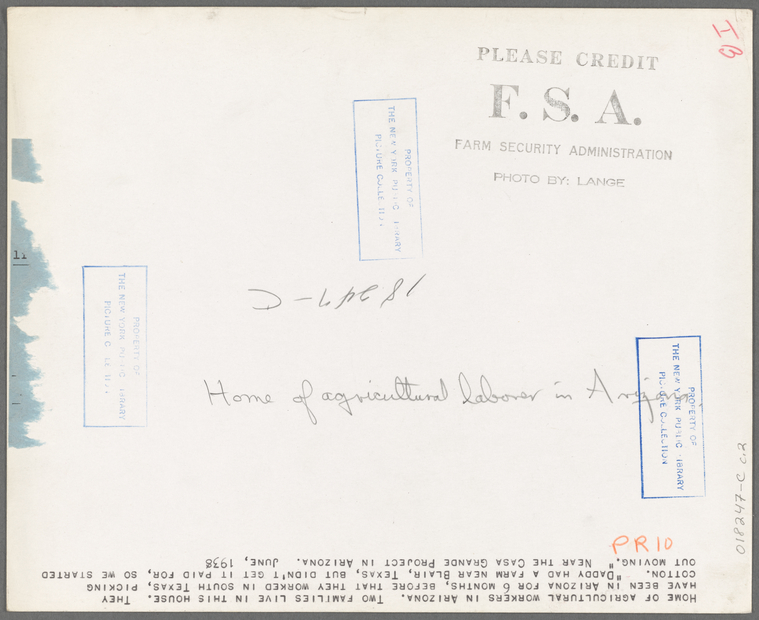 IB
PLEASE CREDIT
F. S. A.
FARM SECURITY ADMINISTRATION
PHOTO BY: LANGE
PROPERTY OF
THE NEW YORK PUBLIC LIBRARY
PICTURE COLLECTION
PROPERTY OF
THE NEW YORK PUBLIC LIBRARY
PICTURE COLLECTION
18247-C
Home of agricultural laborer in Arizona.
PROPERTY OF
THE NEW YORK PUBLIC LIBRARY
PICTURE COLLECTION
018247-C c.2
PR10
HOME OF AGRICULTURAL WORKERS IN ARIZONA. TWO FAMILIES LIVE IN THIS HOUSE. THEY
HAVE BEEN IN ARIZONA 6 MONTHS, BEFORE THAT THEY WORKED IN SOUTH TEXAS, PICKING
COTTON. "DADDY HAD A FARM NEAR BLAIR, TEXAS, BUT DIDN'T GET IT PAID FOR, SO WE STARTED
OUT MOVING." NEAR THE CASA GRANDE PROJECT IN ARIZONA. JUNE, 1938